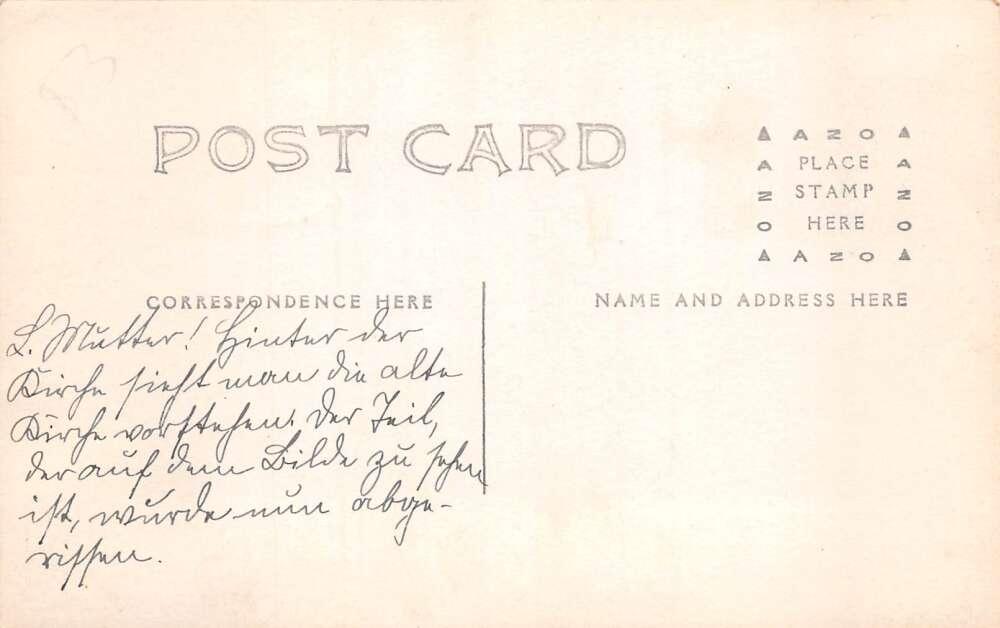 POST CARD
AZO
PLACE
STAMP
HERE
AZO
AZO
AZO
CORRESPONDENCE HERE
NAME AND ADDRESS HERE
L. Mutter! Hinter der
Kirche sieht man die alte
Kirche vorstehen. Der Teil,
der auf dem Bilde zu sehen
ist, wurde nun abge-
rissen.